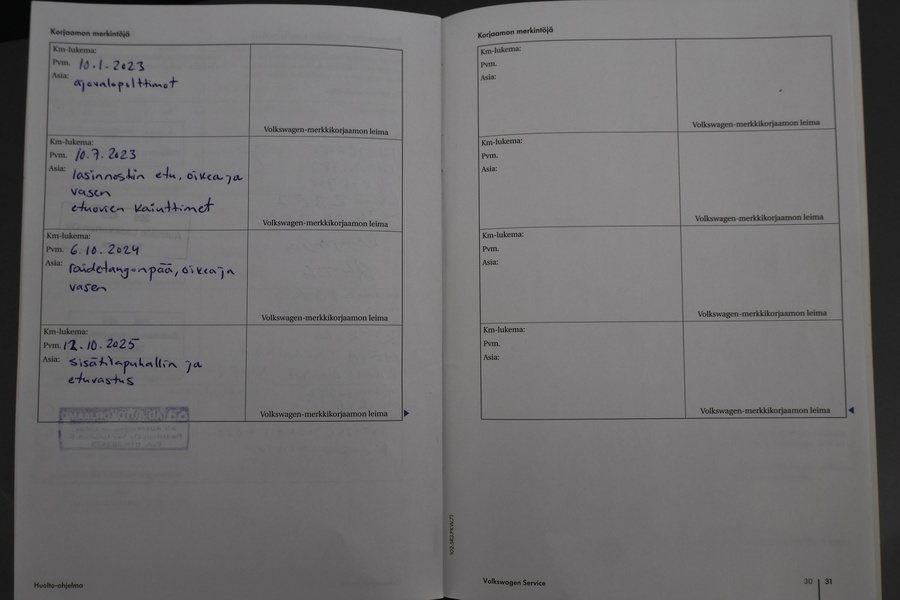 Korjaamon merkintöjä
Km-lukema:
Pvm. 10.1-2023
Asia: ajovalopolttimot
Volkswagen-merkkikorjaamon leima
Km-lukema:
Pvm. 10.7.2023
Asia: lasinnostin etu, oikea ja
vasen
etuovien kaiuttimet
Volkswagen-merkkikorjaamon leima
Km-lukema:
Pvm. 6.10.2024
Asia: raidetangonpää, oikea ja
vasen
Volkswagen-merkkikorjaamon leima
Km-lukema:
Pvm. 12.10.2025
Asia: sisätilapuhallin ja
etuvastus
Volkswagen-merkkikorjaamon leima
Huolto-ohjelma
Korjaamon merkintöjä
Km-lukema:
Pvm.
Asia:
Volkswagen-merkkikorjaamon leima
Km-lukema:
Pvm.
Asia:
Volkswagen-merkkikorjaamon leima
Km-lukema:
Pvm.
Asia:
Volkswagen-merkkikorjaamon leima
Km-lukema:
Pvm.
Asia:
Volkswagen-merkkikorjaamon leima
Volkswagen Service
30 31